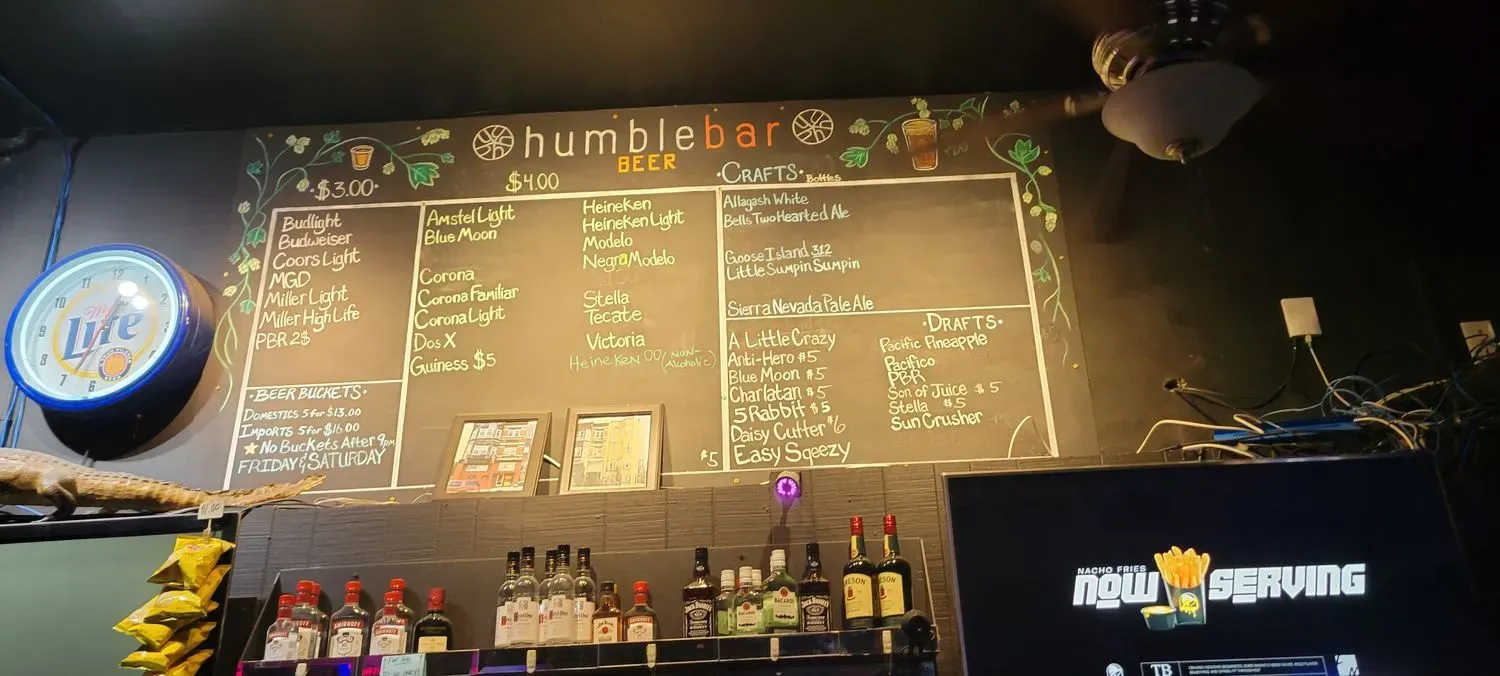 humblebar
BEER
$3.00
Budlight
Budweiser
Coors Light
MGD
Miller Light
Miller High Life
PBR 2$
BEER BUCKETS
DOMESTICS 5 for $13.00
IMPORTS 5 for $16.00
NO BUCKETS AFTER 9pm
FRIDAY & SATURDAY
$4.00
Amstel Light
Blue Moon
Corona
Corona Familiar
Corona Light
Dos X
Guiness $5
Heineken
Heineken Light
Modelo
Negra Modelo
Stella
Tecate
Victoria
Heineken 00 (NON-Alcoholic)
CRAFTS Bottles
Allagash White
Bells Two Hearted Ale
Goose Island 312
Little Sumpin Sumpin
Sierra Nevada Pale Ale
DRAFTS
A Little Crazy
Anti-Hero $5
Blue Moon $5
Charlatan $5
5 Rabbit $5
Daisy Cutter $6
$5 Easy Sqeezy
Pacific Pineapple
Pacifico
PBR
Son of Juice $5
Stella $5
Sun Crusher
Lite
12
11
10
9
8
7
6
2
$1.00
SMIRNOFF
SMIRNOFF
JACK DANIEL'S
BACARDI
BACARDI
NACHO FRIES
NOW SERVING
TB